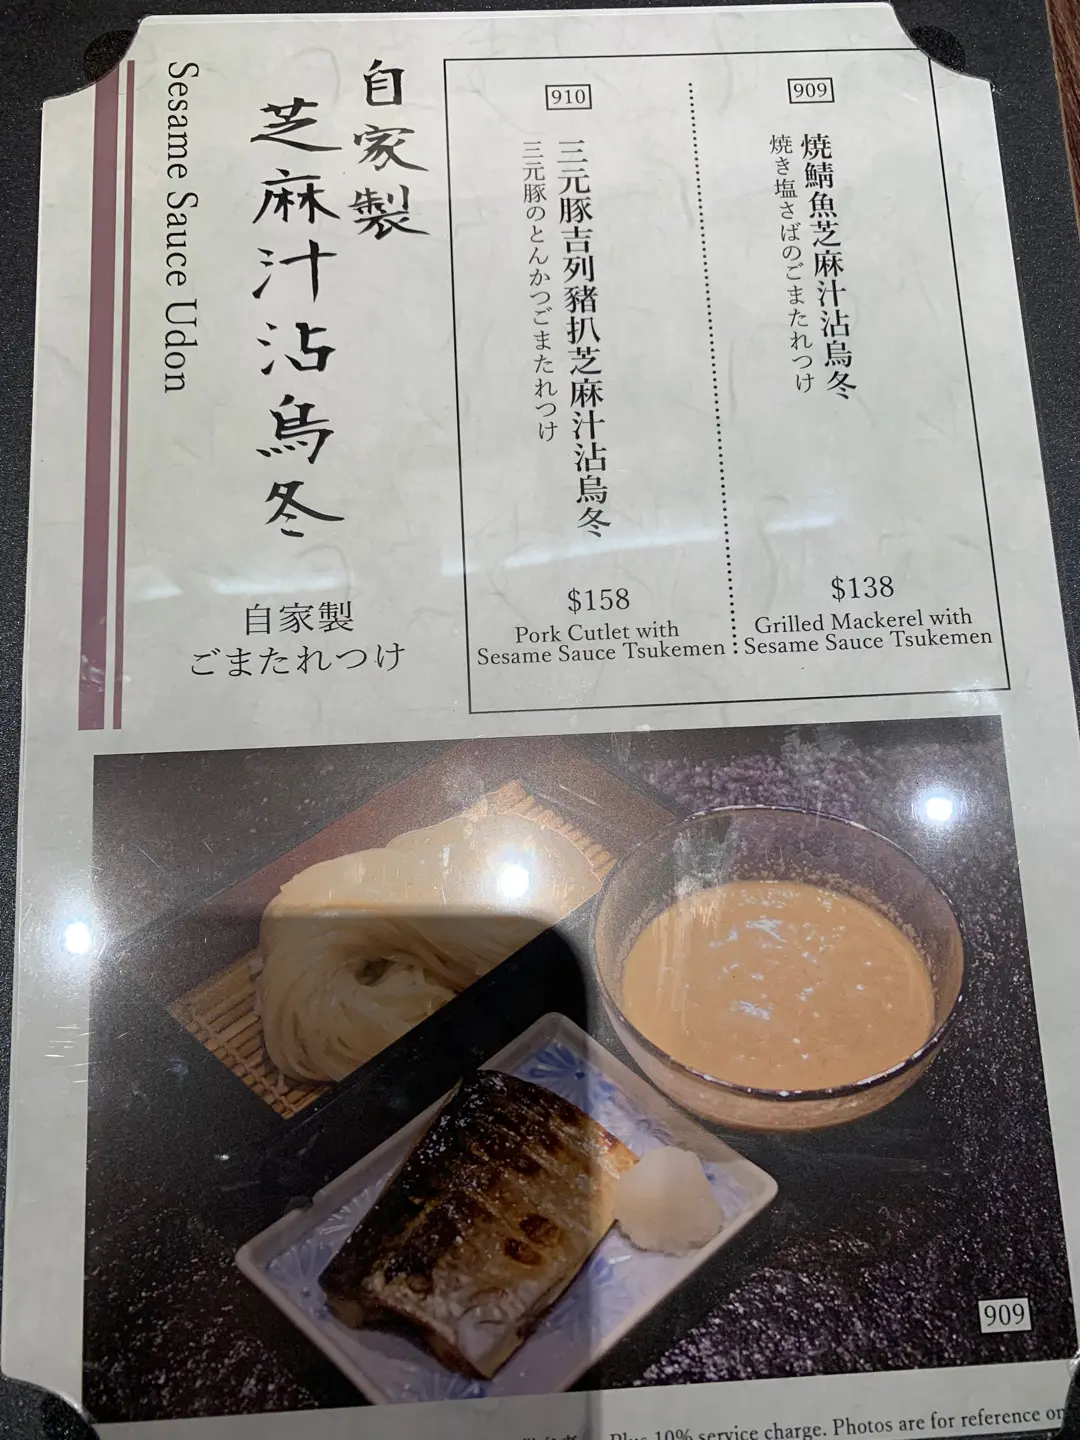 自家製
芝麻汁沾烏冬
Sesame Sauce Udon
自家製
ごまたれつけ
909
焼鯖魚芝麻汁沾烏冬
焼き塩さばのごまたれつけ
$138
Grilled Mackerel with
Sesame Sauce Tsukemen
910
三元豚吉列豬扒芝麻汁沾烏冬
三元豚のとんかつごまたれつけ
$158
Pork Cutlet with
Sesame Sauce Tsukemen
909
Plus 10% service charge. Photos are for reference on